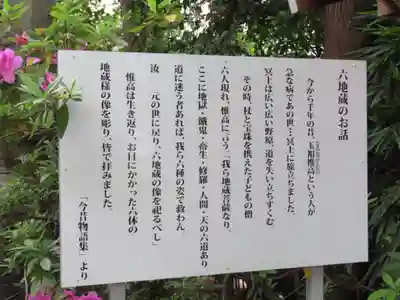 六地蔵のお話
今から千年の昔、玉祖惟高という人が
急な病であの世…冥土に旅立ちました。
冥土は広い広い野原、道を失い立ちすくむ
その時、杖と宝珠を携えた子どもの僧
六人現れ、惟高に言う「我ら地蔵菩薩なり。
ここに地獄・餓鬼・畜生・修羅・人間・天の六道あり
道に迷う者あれば、我ら六種の姿で救わん。
汝 元の世に戻り、六地蔵の像を祀るべし」
惟高は生き返り、お目にかかった六体の
地蔵様の像を彫り、皆で拝みました。
「今昔物語集」より